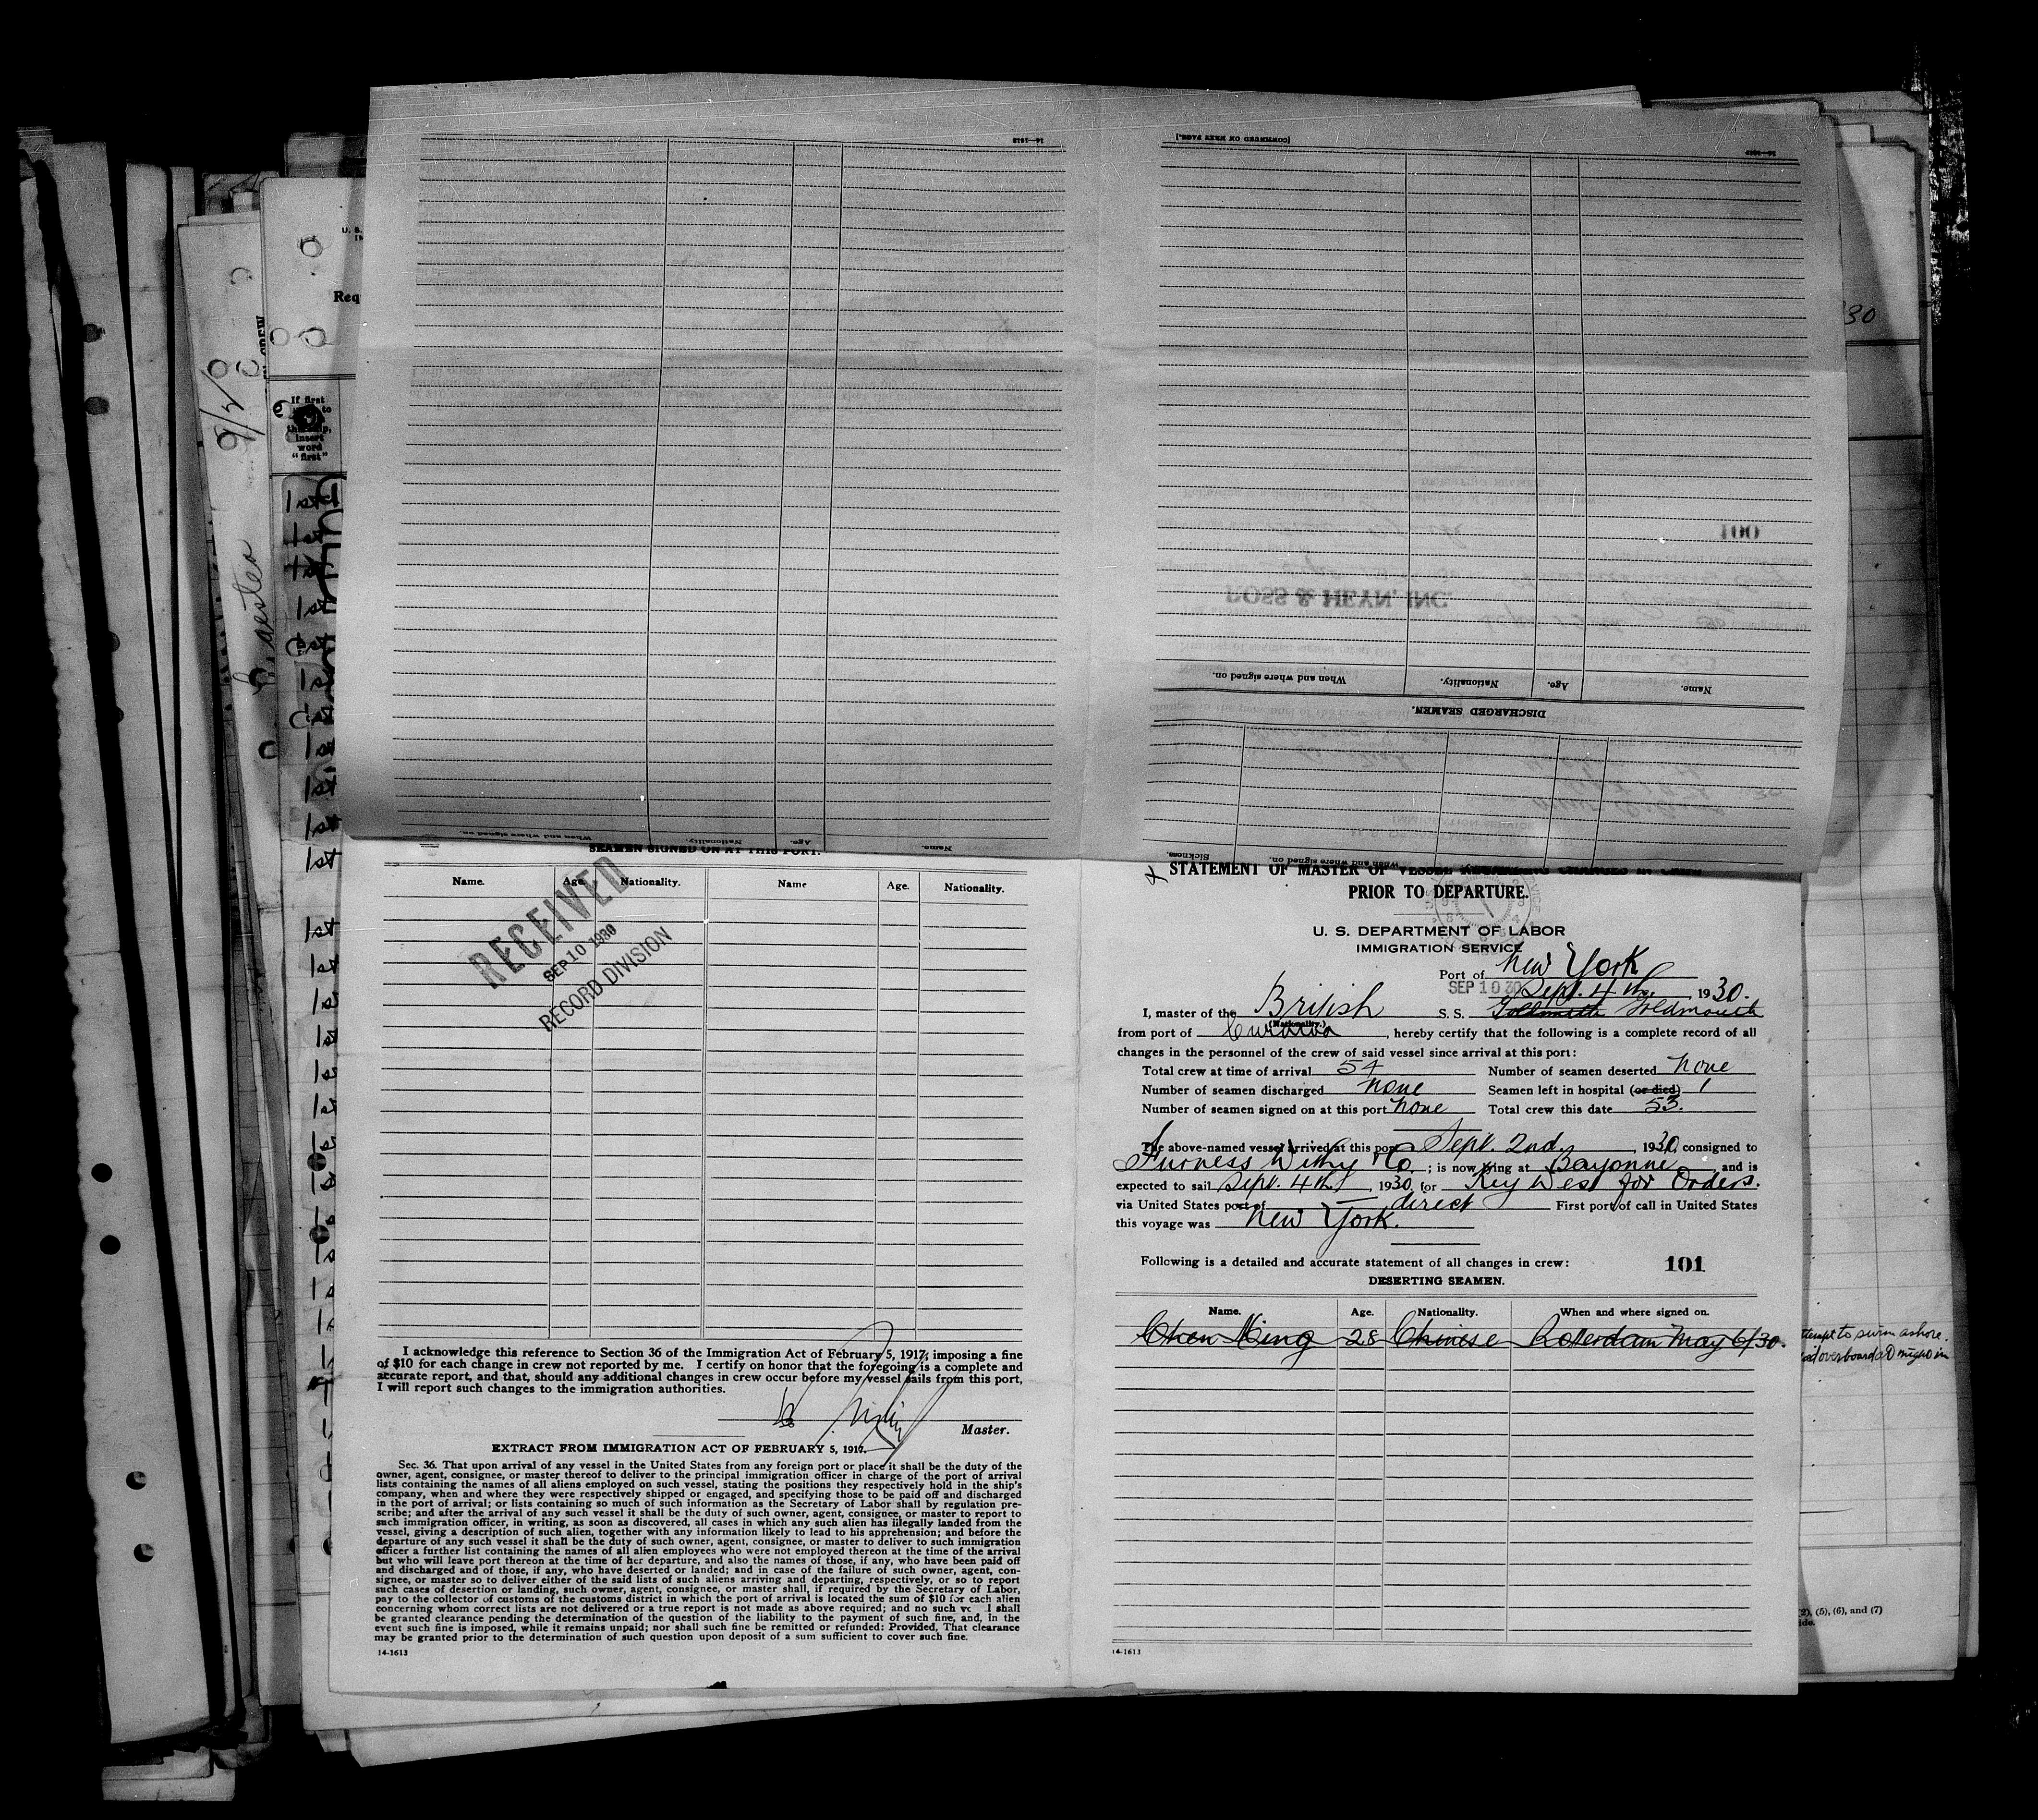 SEAMEN SIGNED ON AT THIS PORT.
Name. Age. Nationality. Name Age. Nationality.
RECEIVED
SEP 10 1930
RECORD DIVISION
I acknowledge this reference to Section 36 of the Immigration Act of February 5, 1917, imposing a fine
of $10 for each change in crew not reported by me. I certify on honor that the foregoing is a complete and
accurate report, and that, should any additional changes in crew occur before my vessel sails from this port,
I will report such changes to the immigration authorities.
Master.
EXTRACT FROM IMMIGRATION ACT OF FEBRUARY 5, 1917.
Sec. 36. That upon arrival of any vessel in the United States from any foreign port or place it shall be the duty of the
owner, agent, consignee, or master thereof to deliver to the principal immigration officer in charge of the port of arrival
lists containing the names of all aliens employed on such vessel, stating the positions they respectively hold in the ship's
company, when and where they were respectively shipped or engaged, and specifying those to be paid off and discharged
in the port of arrival; or lists containing so much of such information as the Secretary of Labor shall by regulation pre-
scribe; and after the arrival of any such vessel it shall be the duty of such owner, agent, consignee, or master to report to
such immigration officer, in writing, as soon as discovered, all cases in which any such alien has illegally landed from the
vessel, giving a description of such alien, together with any information likely to lead to his apprehension; and before the
departure of any such vessel it shall be the duty of such owner, agent, consignee, or master to deliver to such immigration
officer a further list containing the names of all alien employees who were not employed thereon at the time of the arrival
but who will leave port thereon at the time of her departure, and also the names of those, if any, who have been paid off
and discharged and of those, if any, who have deserted or landed; and in case of the failure of such owner, agent, con-
signee, or master so to deliver either of the said lists of such aliens arriving and departing, respectively, or so to report
such cases of desertion or landing, such owner, agent, consignee, or master shall, if required by the Secretary of Labor,
pay to the collector of customs of the customs district in which the port of arrival is located the sum of $10 for each alien
concerning whom correct lists are not delivered or a true report is not made as above required; and no such ve l shall
be granted clearance pending the determination of the question of the liability to the payment of such fine, and, in the
event such fine is imposed, while it remains unpaid; nor shall such fine be remitted or refunded: Provided, That clearance
may be granted prior to the determination of such question upon deposit of a sum sufficient to cover such fine.
14-1613
STATEMENT OF MASTER OF VESSEL REGARDING CHANGES IN CREW
PRIOR TO DEPARTURE.
U. S. DEPARTMENT OF LABOR
IMMIGRATION SERVICE
Port of New York
SEP 10 30 Sept. 4th, 1930.
I, master of the British S. S. Goldmouth Goldmouth
(Nationality.)
from port of Curacoa, hereby certify that the following is a complete record of all
changes in the personnel of the crew of said vessel since arrival at this port:
Total crew at time of arrival 54 Number of seamen deserted None
Number of seamen discharged None Seamen left in hospital (or died) 1
Number of seamen signed on at this port None Total crew this date 53.
The above-named vessel arrived at this port Sept. 2nd, 1930, consigned to
Furness Withy & Co.; is now lying at Bayonne, and is
expected to sail Sept. 4th, 1930, for Key West for Orders.
via United States port of — direct First port of call in United States
this voyage was New York.
Following is a detailed and accurate statement of all changes in crew: 101
DESERTING SEAMEN.
Name. Age. Nationality. When and where signed on.
Chen King 28 Chinese Rotterdam May 6/30.
14-1613
DISCHARGED SEAMEN.
Name. Age. Nationality. When and where signed on.
When and where signed on. Sickness.
Name. Age. Nationality. When and where signed on.
[CONTINUED ON NEXT PAGE.]
ROSS & HEYN, INC.
100
If first
word
"first"
attempt to swim ashore.
overboard at night in
(2), (5), (6), and (7)